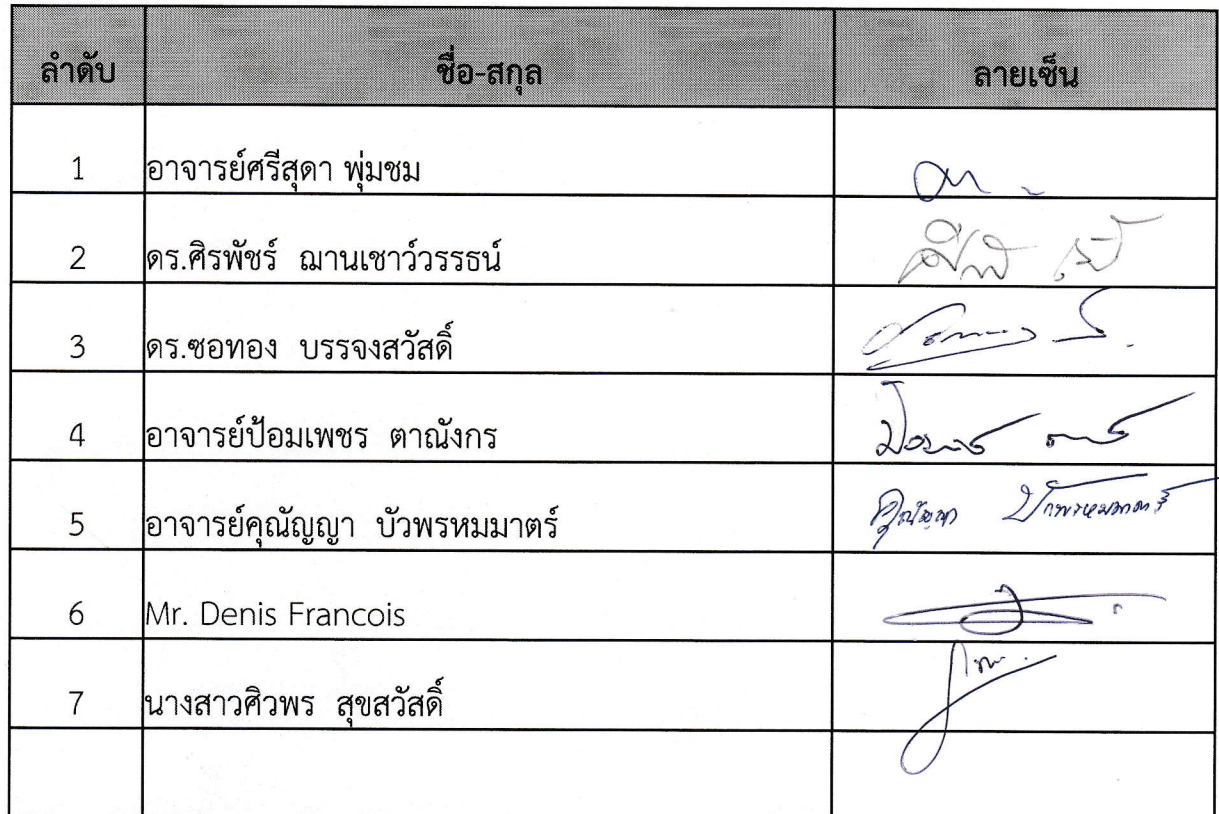 ลำดับ ชื่อ-สกุล ลายเซ็น
1 อาจารย์ศรีสุดา พุ่มชม
2 ดร.ศิรพัชร์ ฌานเชาว์วรรธน์
3 ดร.ซอทอง บรรจงสวัสดิ์
4 อาจารย์ป้อมเพชร ตาณังกร
5 อาจารย์คุณัญญา บัวพรหมมาตร์ คุณัญญา บัวพรหมมาตร์
6 Mr. Denis Francois
7 นางสาวศิวพร สุขสวัสดิ์